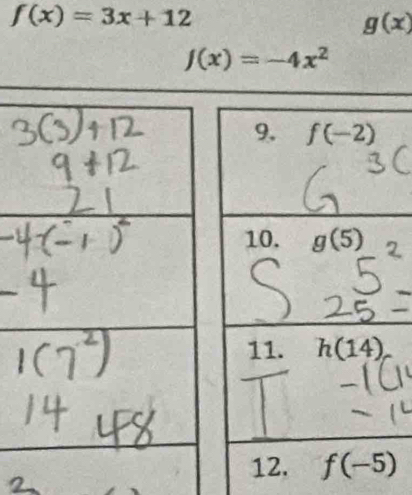 f(x) = 3x + 12
g(x)
J(x) = -4x²
3(3)+12
9+12
21
-4(-1)²
-4
1(7²)
14 48
2
9. f(-2)
3(
G
10. g(5)
5²
S
25 =
11. h(14)
-1(14
I
-14
12. f(-5)